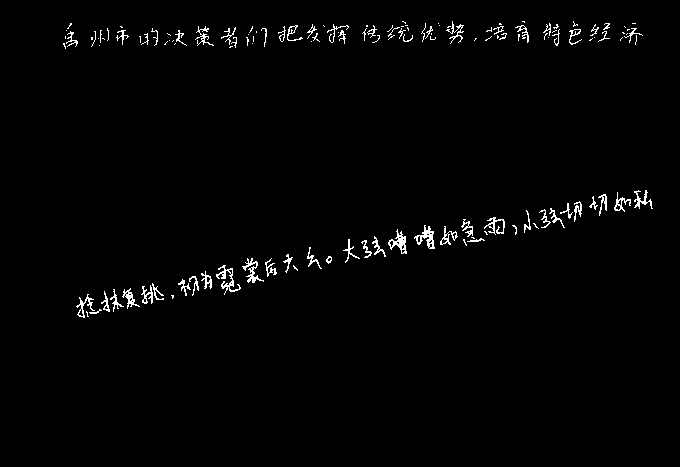 禹州市的决策者们把发挥传统优势，培育特色经济
捻抹复挑，初为霓裳后六幺。大弦嘈嘈如急雨，小弦切切如私